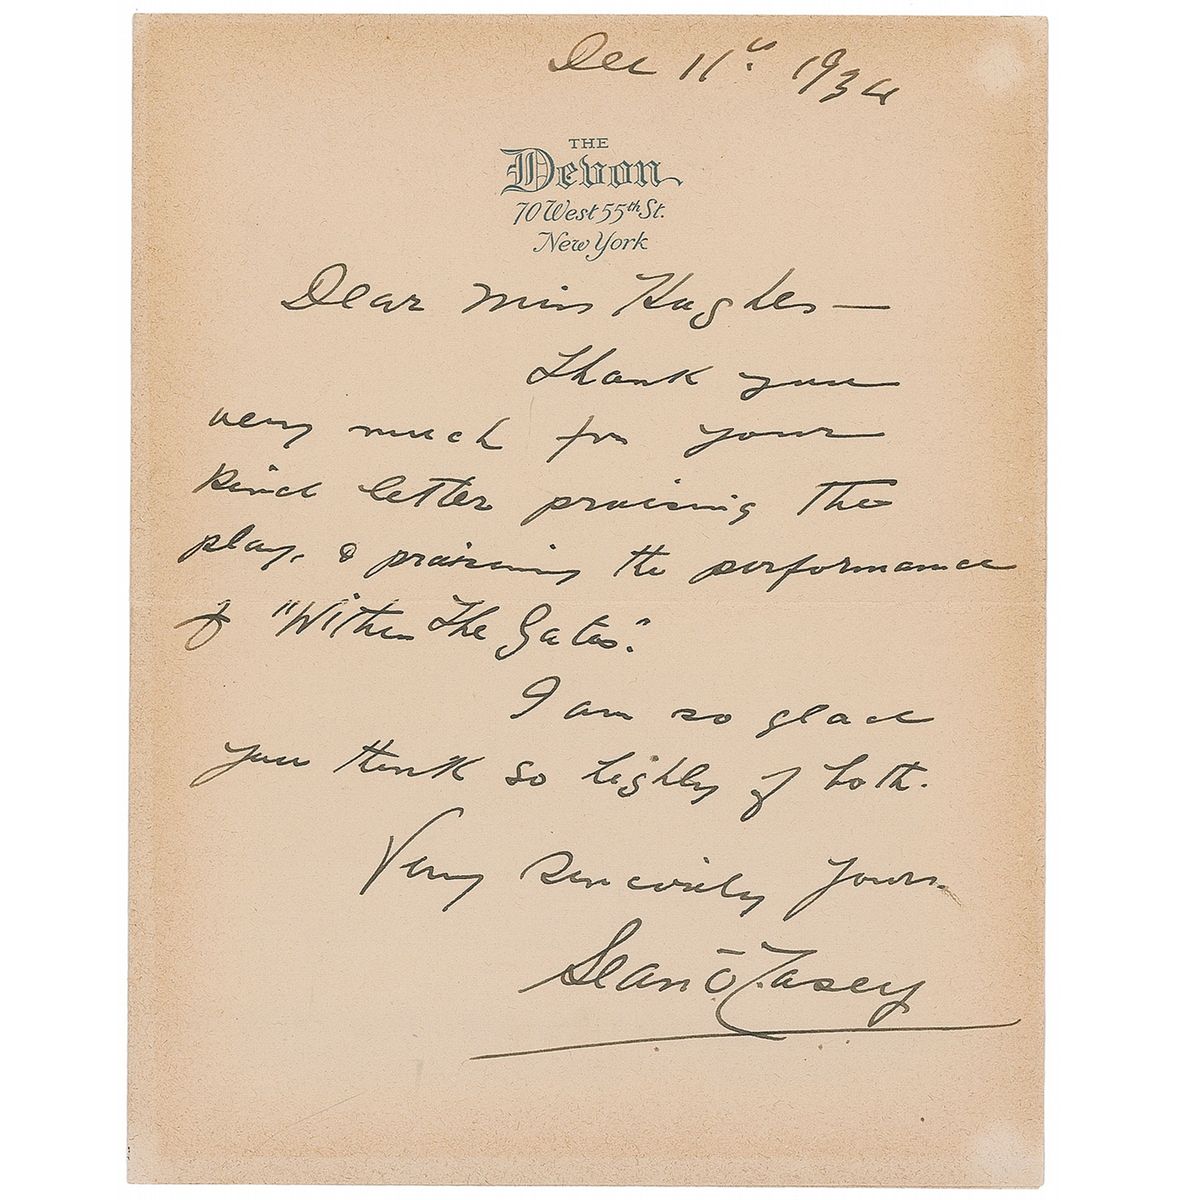 Dec 11th 1934
THE
Devon
70 West 55th St.
New York
Dear Miss Hughes —
Thank you
very much for your
kind letter praising the
play, & praising the performance
of "Within The Gates".
I am so glad
you think so highly of both.
Very sincerely yours.
Sean O'Casey